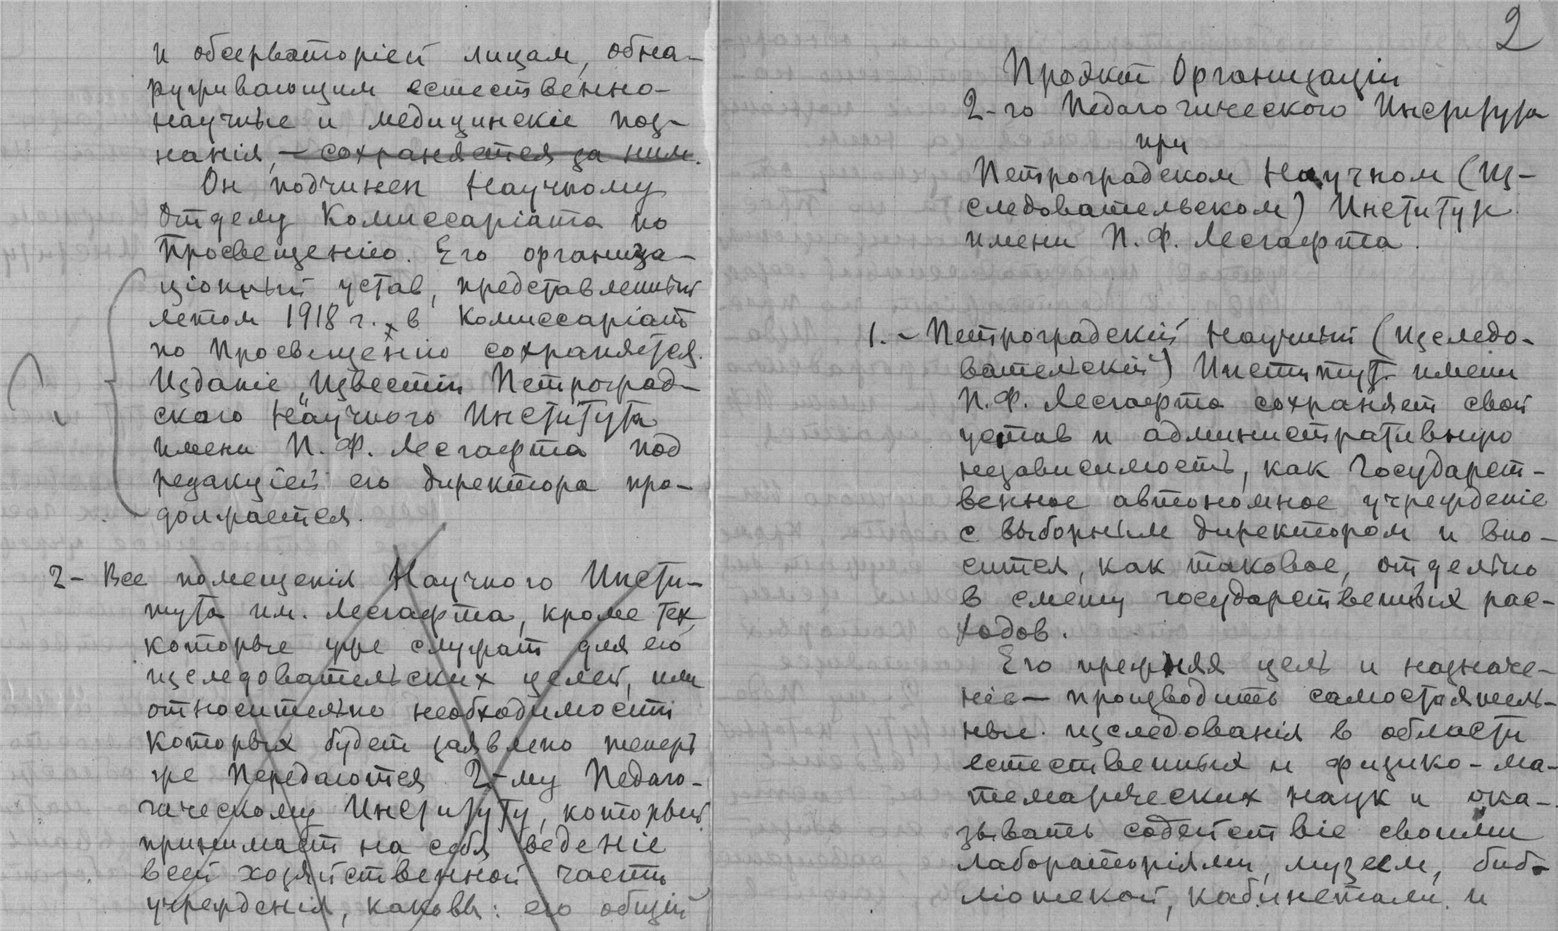 и обсерваторіей лицам, обна-
руживающим естественно-
научные и медицинскіе поз-
нанія, – сохраняется за ним.
Он подчинен Научному
Отделу Комиссаріата по
Просвещенію. Его организа-
ціонный устав, представленный
летом 1918 г. в Комиссаріат
по Просвещенію сохраняется.
Изданіе „Известій Петроград-
ского Научного Института
имени П. Ф. Лесгафта под
редакціей его директора про-
должается.
2- Все помещенія Научного Инсти-
тута им. Лесгафта, кроме тех,
которые уже служат для его
изследовательских целей, или
относительно необходимости
которых будет заявлено теперь
же передаются 2-му Педаго-
гическому Институту, который
принимает на себя веденіе
всей хозяйственной части
учрежденія, каковы: его общій
2
Проэкт Организаціи
2-го Педагогического Института
при
Петроградском Научном (Из-
следовательском) Институте
имени П. Ф. Лесгафта.
1. – Петроградскій Научный (изследо-
вательскій) Институт имени
П. Ф. Лесгафта сохраняет свой
устав и административную
независимость, как Государст-
венное автономное учрежденіе
с выборным директором и вно-
сится, как таковое, отдельно
в смету государственных рас-
ходов.
Его прежняя цель и назначе-
ніе – производить самостоятель-
ныя изследованія в области
естественных и физико-ма-
тематических наук и ока-
зывать содействіе своими
лабораторіями, музеем, биб-
ліотекой, кабинетами и